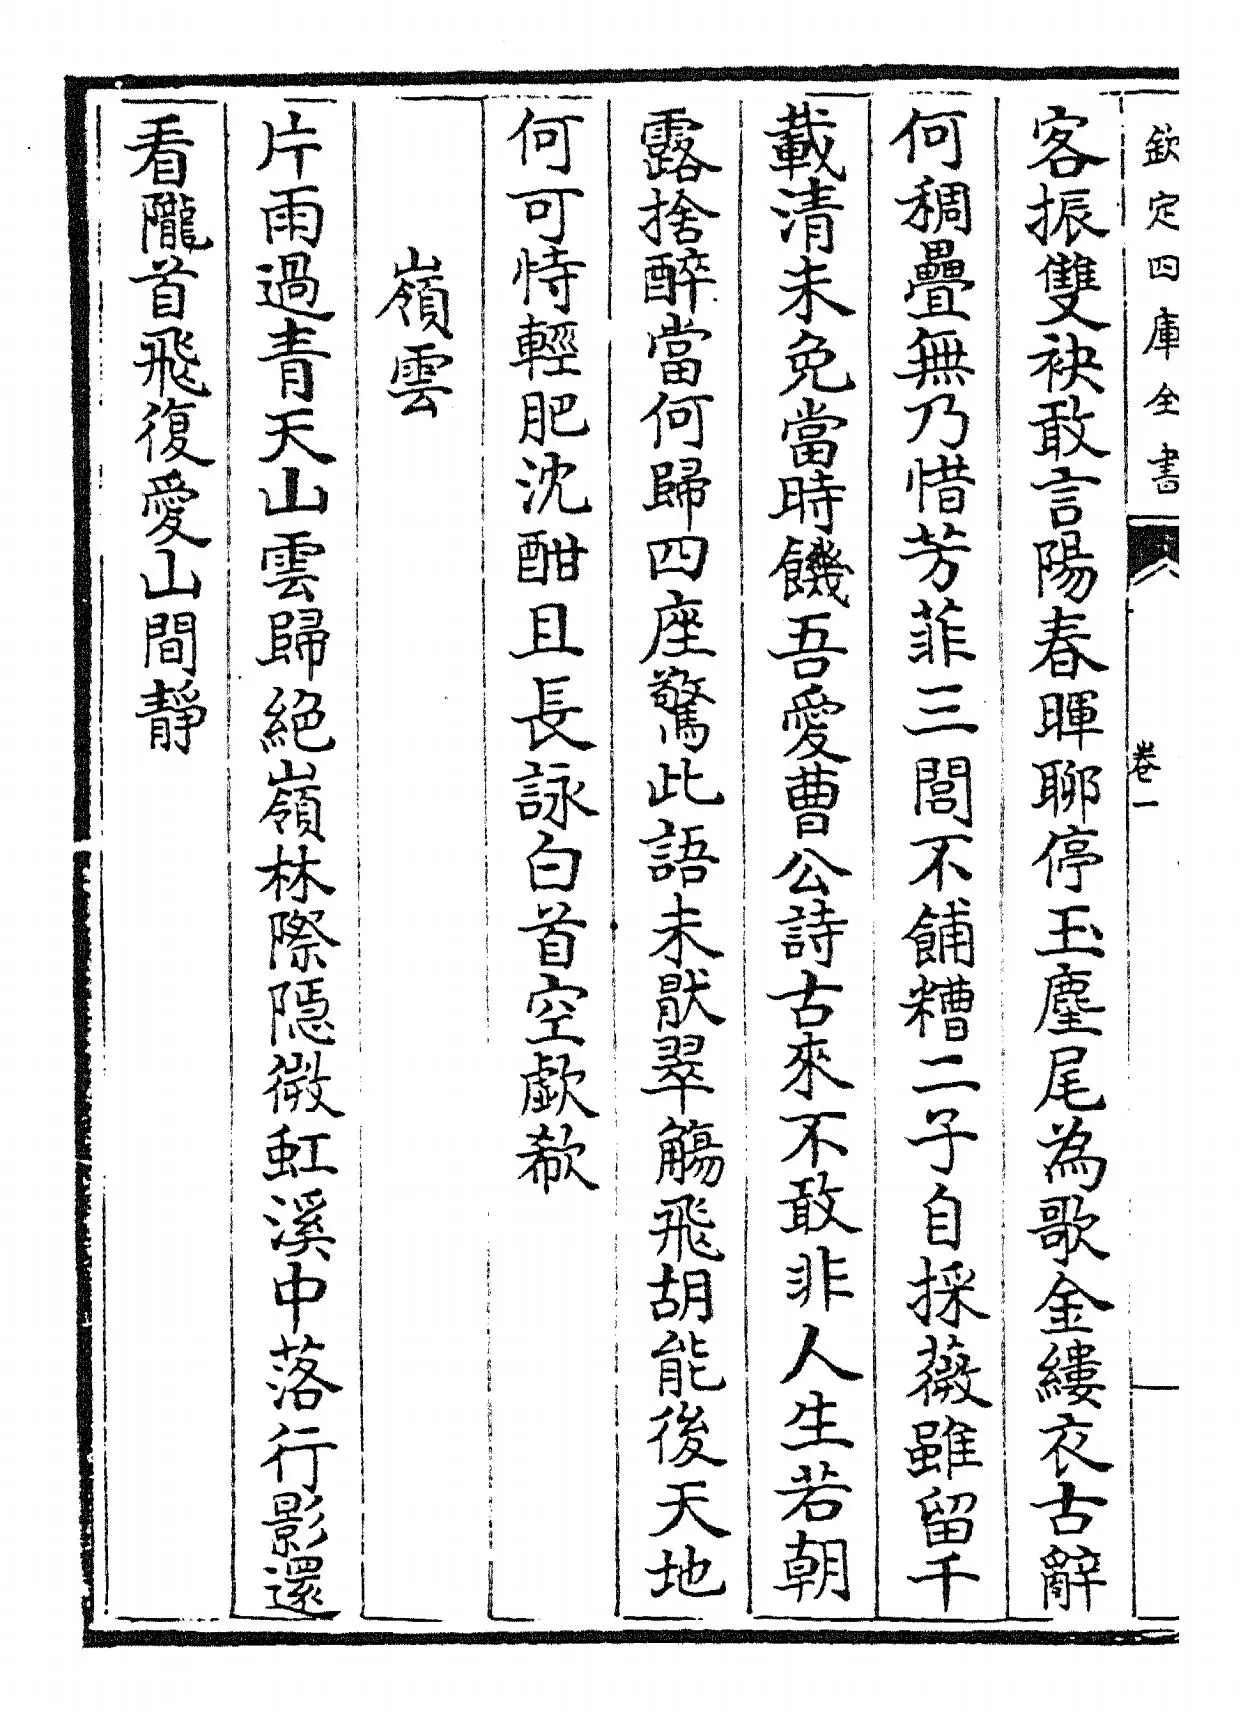 欽定四庫全書
卷一
客振雙袂敢言陽春暉聊停玉麈尾為歌金縷衣古辭
何稠疊無乃惜芳菲三閭不餔糟二子自採薇雖留千
載清未免當時饑吾愛曹公詩古來不敢非人生若朝
露捨醉當何歸四座驚此語未厭翠觴飛胡能後天地
何可恃輕肥沈酣且長詠白首空歔欷
嶺雲
片雨過青天山雲歸絕嶺林際隱微虹溪中落行影還
看隴首飛復愛山間靜